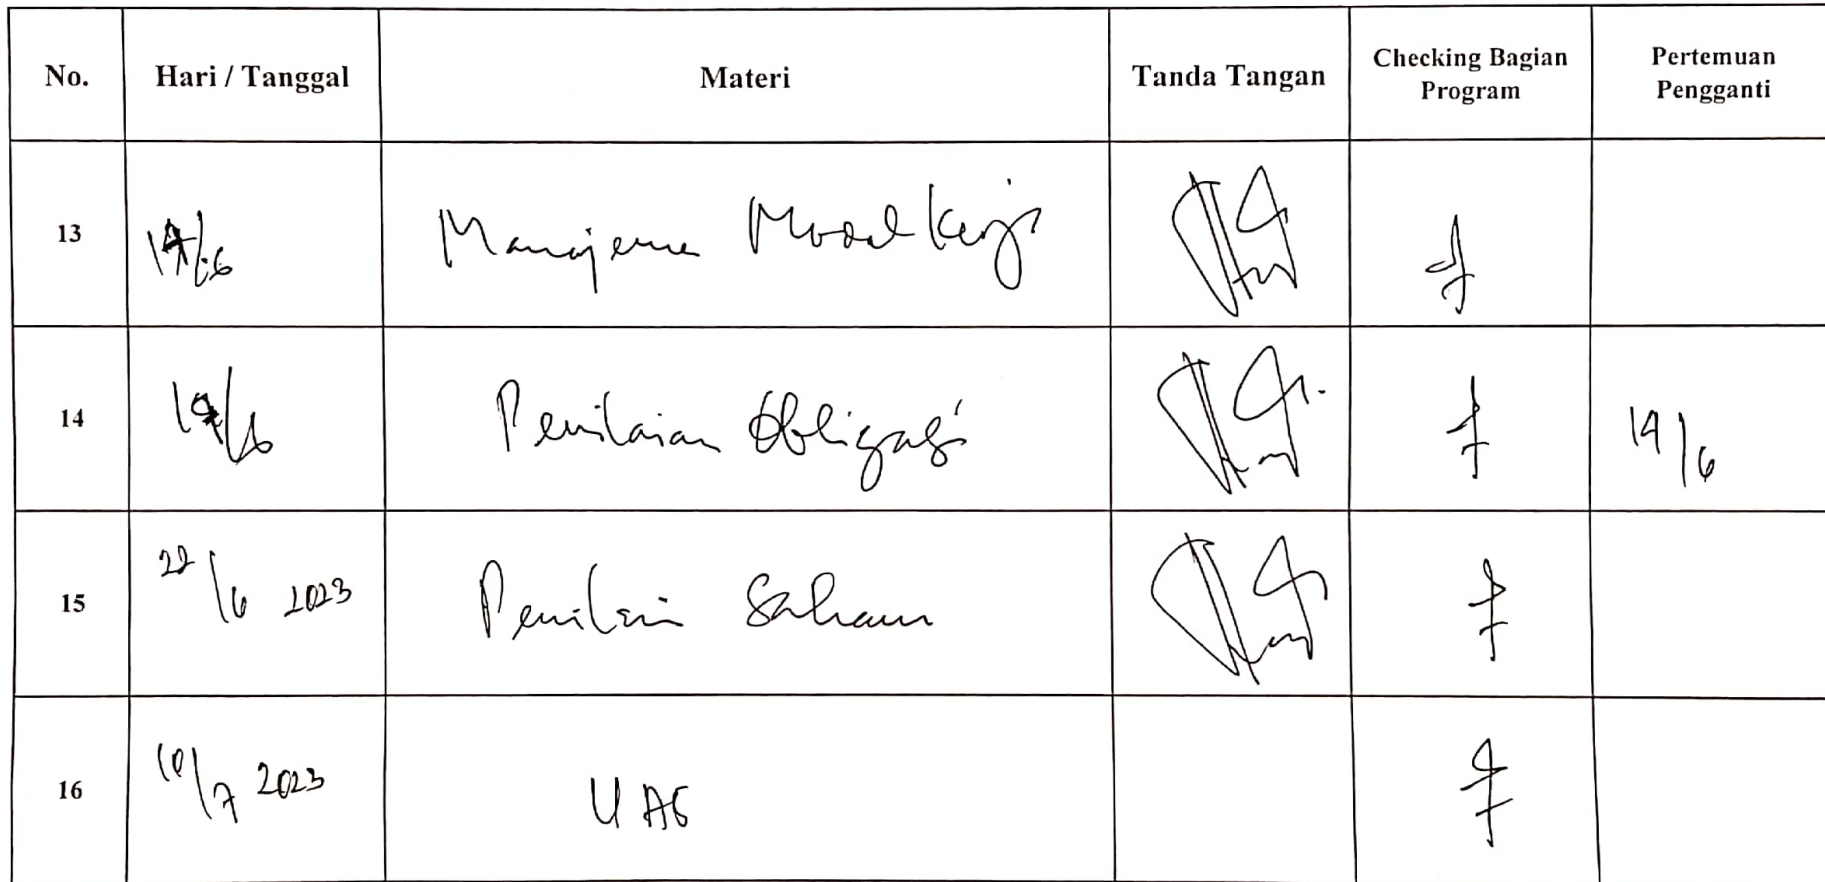 No. Hari / Tanggal Materi Tanda Tangan Checking Bagian Program Pertemuan Pengganti
13 Manajeme Modal Kerja
14 19/6 Penilaian Obligasi 19/6
15 22/6 2023 Penilain Saham
16 10/7 2023 UAS